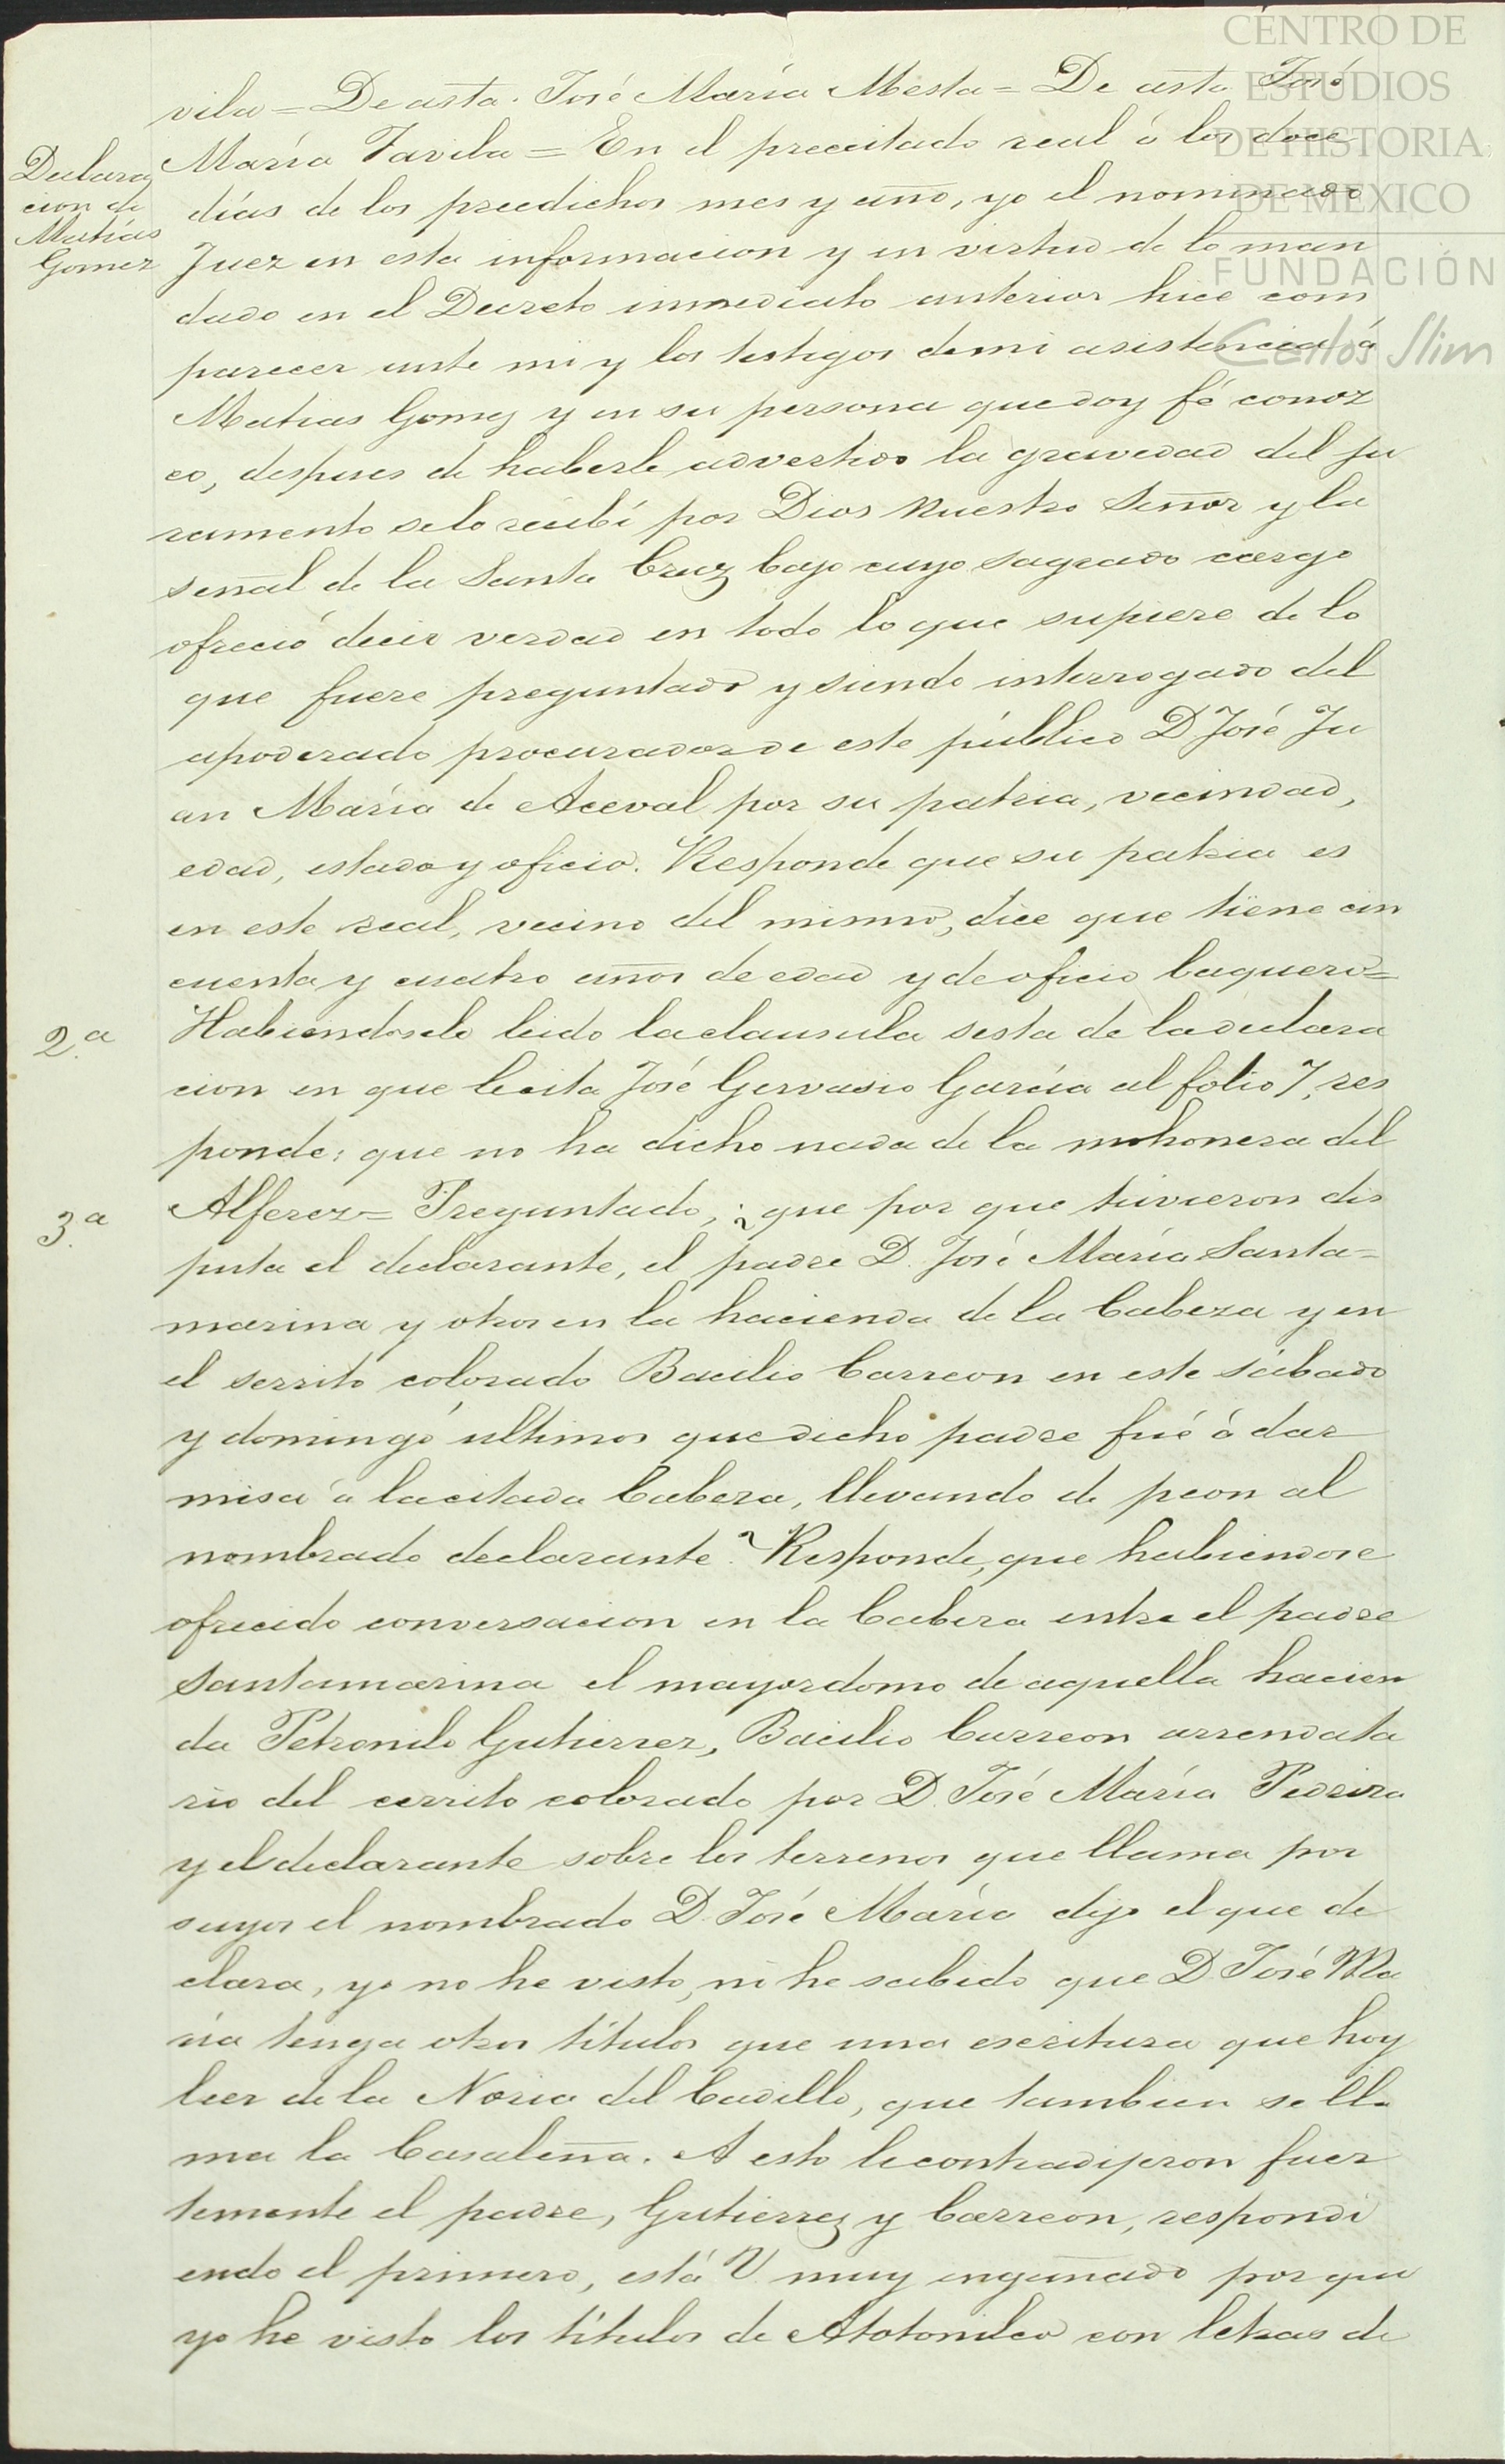 CENTRO DE
ESTUDIOS
DE HISTORIA
DE MEXICO
FUNDACIÓN
Carlos Slim
vila = De asta. José María Mesta = De asta José
María Favila = En el precitado real á los doce
Declara
cion de
Matías
Gomez
días de los preedichos mes y año, yo el nominado
Juez en esta informacion y en virtud de lo man
dado en el Decreto inmediato anterior hice com
parecer ante mi y los testigos demi asistencia á
Matias Gomez y en su persona que doy fé conoz
co, despues de haberle advertido la gravedad del ju
ramento selo recibí por Dios Nuestro Señor y la
señal de la Santa Cruz bajo cuyo sagrado cargo
ofreció decir verdad en todo lo que supiere de lo
que fuere preguntado y siendo interrogado del
apoderado procurador de este público D José Ju
an María de Aceval por su patria, vecindad,
edad, estado y oficio. Responde que su patria es
en este real, vecino del mismo, dice que tiene cin
cuenta y cuatro años de edad y de oficio baquero =
2.a
Habiendosele leido la clausula sesta de la declara
cion en que lecita José Gervasio García al folio 7, res
ponde: que no ha dicho nada de la mohonera del
3.a
Alferez = Preguntado, ¿que por que tuvieron dis
puta el declarante, el padre D. José María Santa=
marina y otros en la hacienda de la Cabeza y en
el serrito colorado Bacilio Carreon en este sábado
y domingo ultimos que dicho padre fué á dar
misa á lacitada Cabeza, llevando de peon al
nombrado declarante? Responde, que habiendose
ofrecido conversacion en la Cabeza entre el padre
Santamarina el mayordomo de aquella hacien
da Petronilo Gutierrez, Bacilio Carreon arrendata
rio del cerrito colorado por D. José María Pedriza
y el declarante sobre los terrenos que llama por
suyos el nombrado D. José María dijo el que de
clara, yo no he visto, ni he sabido que D. José Ma
ría tenga otros títulos que una escritura que hoy
leer de la Noria del Cadillo, que tambien se lla
ma la Casaleña. A esto lecontradijeron fuer
temente el padre, Gutierrez y Carreon, respondi
endo el primero, está V. muy engañado por que
yo he visto los títulos de Atotonilco con letras de